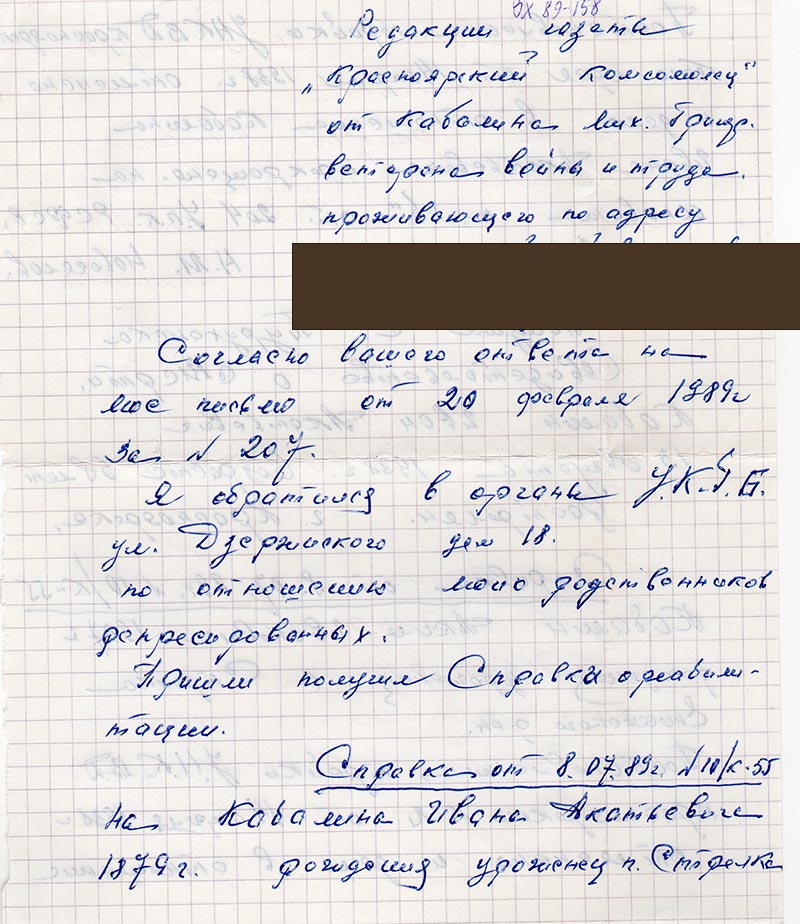 ОХ 89-158
Редакции газеты
„Красноярский Комсомолец"
от Кабалина Мих. Григ.
ветерана войны и труда.
проживающего по адресу
Согласно вашего ответа на
мое письмо от 20 февраля 1989г
за № 207.
Я обратился в органы У.К.Г.Б.
ул. Дзержинского дом 18.
по отношению моио родственников
репресированных.
Пришли получил Справки о реабили-
тации.
Справка от 8.07.89г. №10/к-55
на Кабалина Ивана Акатьевича
1879г. рождения уроженец п. Стрелка